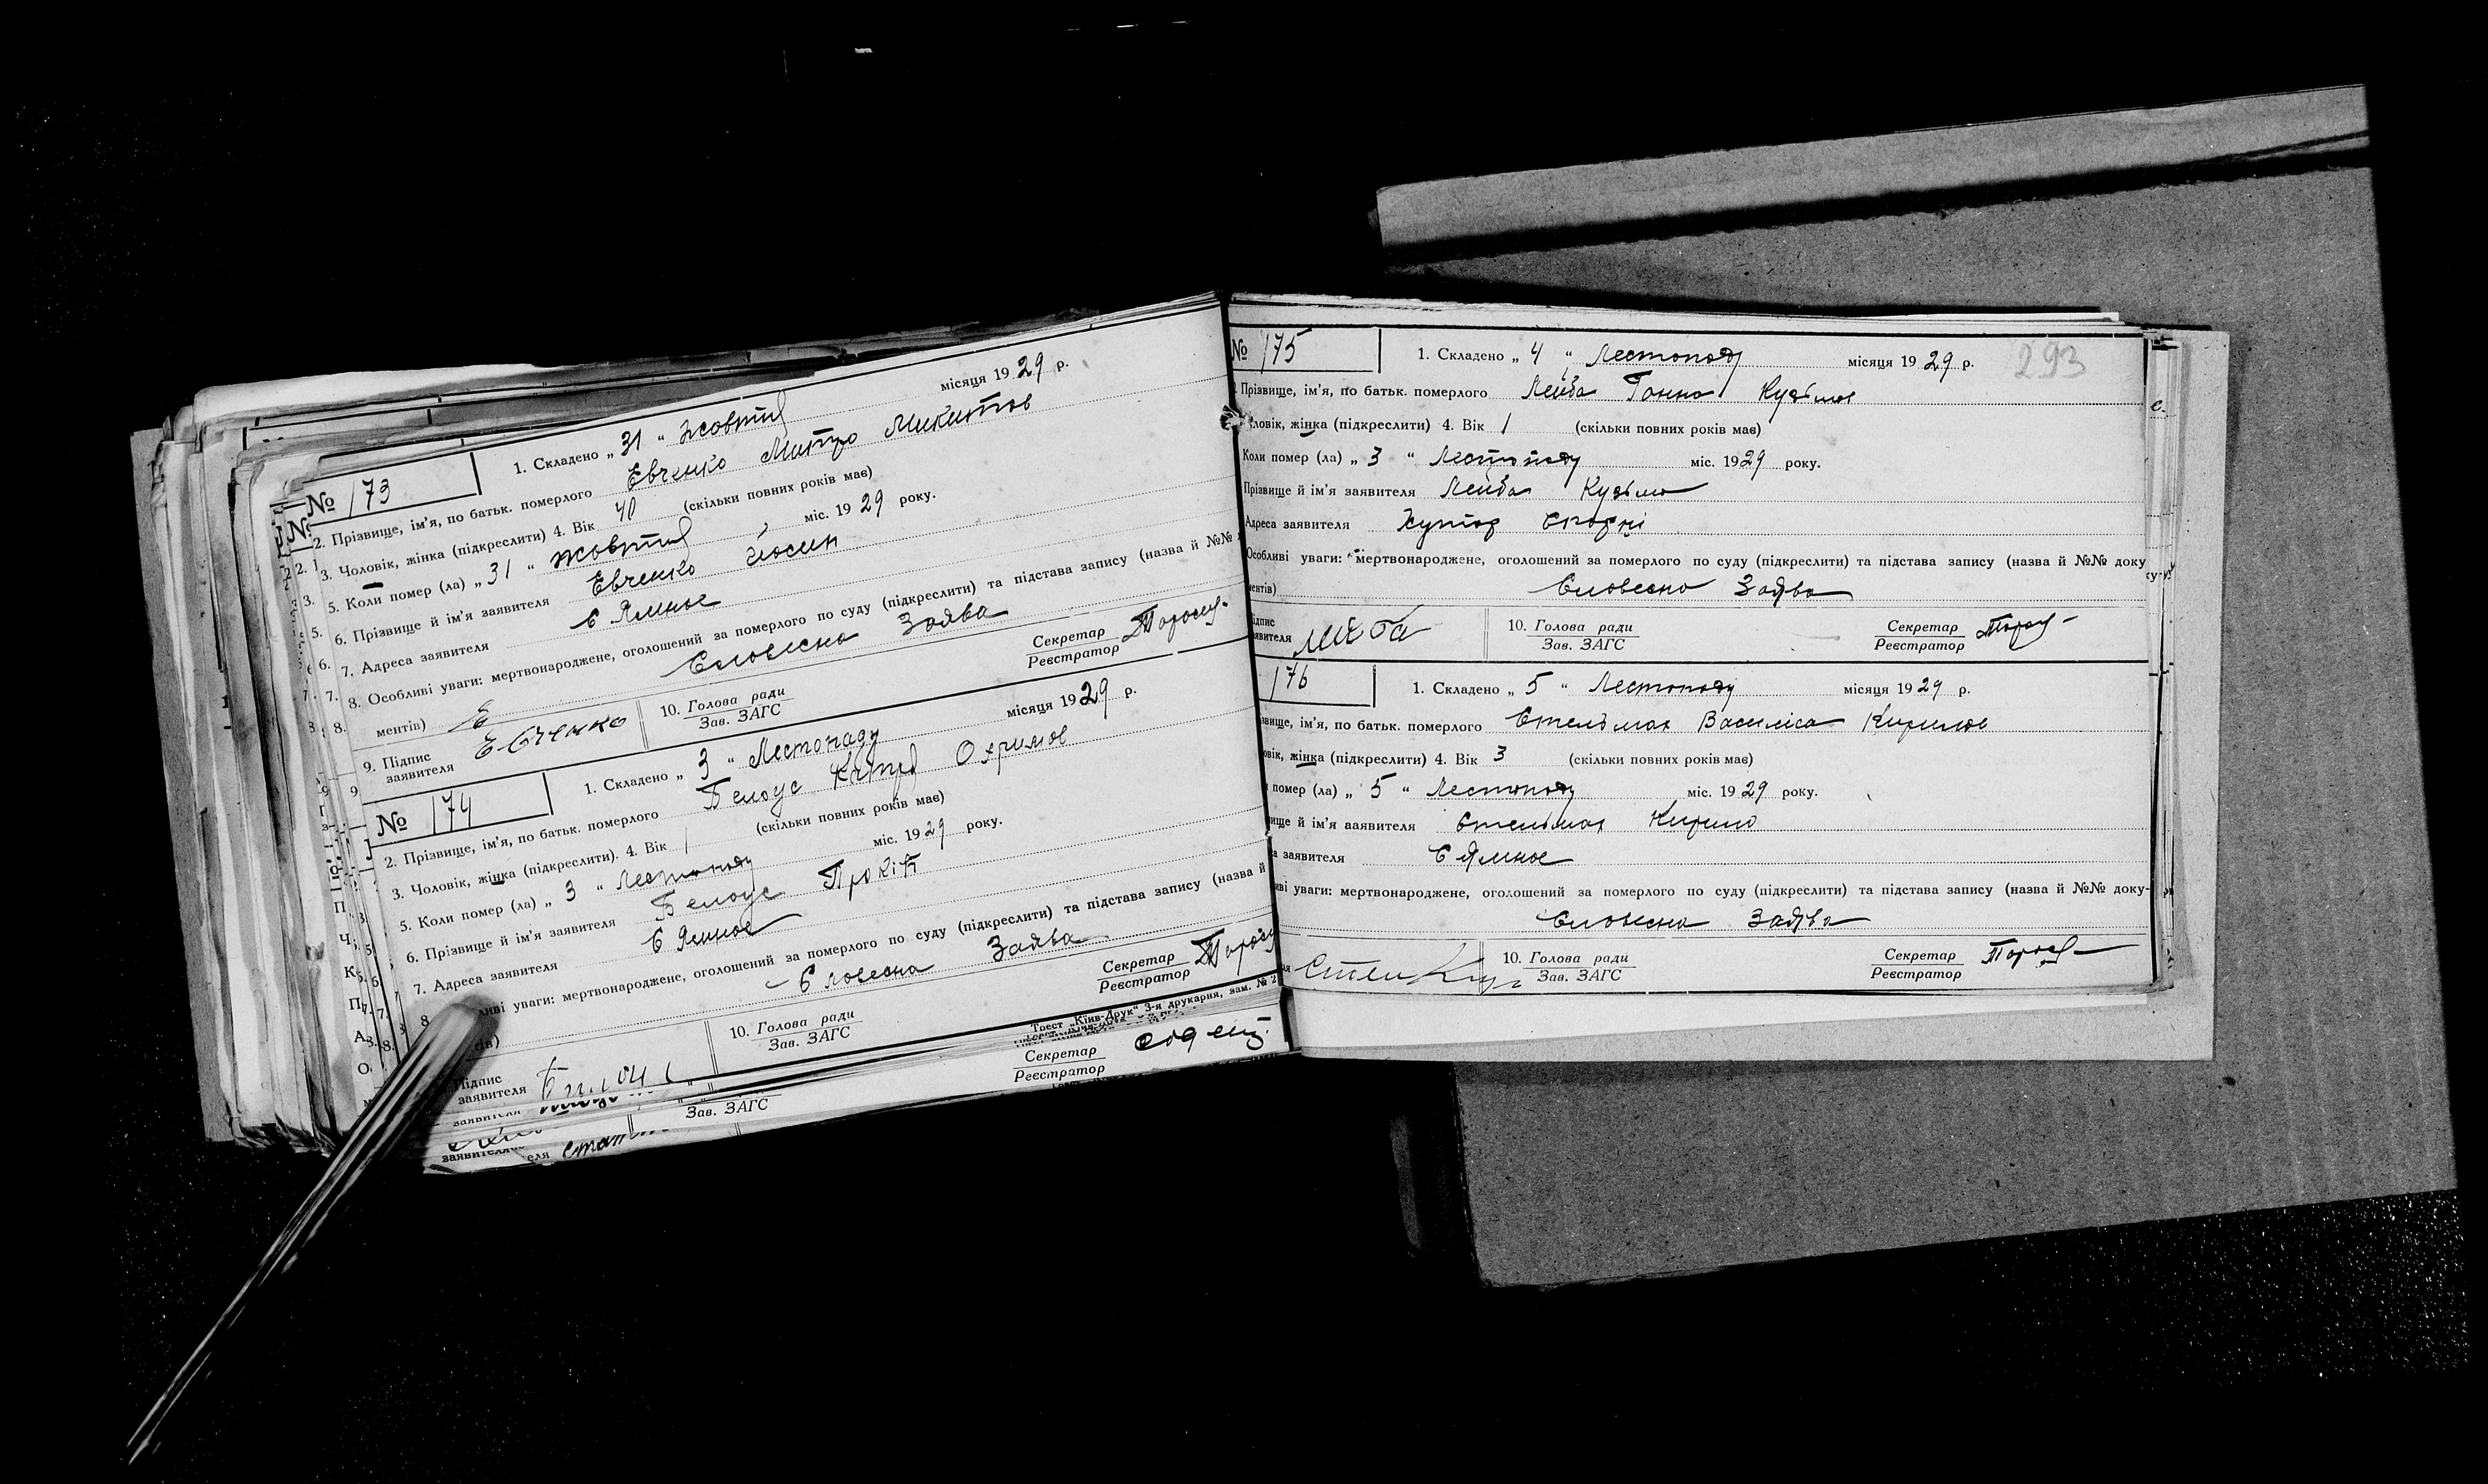 № 173
1. Складено „ 31 " жовтня місяця 1929 р.
2. Прізвище, ім'я, по батьк. померлого Евченко Митро Микитов
3. Чоловік, жінка (підкреслити) 4. Вік 40 (скільки повних років має)
5. Коли помер (ла) „ 31 " жовтня міс. 1929 року.
6. Прізвище й ім'я заявителя Евченко
7. Адреса заявителя С Ямное
8. Особливі уваги: мертвонароджене, оголошений за померлого по суду (підкреслити) та підстава запису (назва й №№
ментів) Словесна Заява
9. Підпис заявителя Евченко
10. Голова ради
Зав. ЗАГС
Секретар
Реєстратор
№ 174
1. Складено „ 3 " Лестопаду місяця 1929 р.
2. Прізвище, ім'я, по батьк. померлого Белоус Охримов
3. Чоловік, жінка (підкреслити). 4. Вік 1 (скільки повних років має)
5. Коли помер (ла) „ 3 " Лестопаду міс. 1929 року.
6. Прізвище й ім'я заявителя Белоус
7. Адреса заявителя С Ямное
8 ливі уваги: мертвонароджене, оголошений за померлого по суду (підкреслити) та підстава запису (назва й
ів) Словесна Заява
Підпис
заявителя
10. Голова ради
Зав. ЗАГС
Секретар
Реєстратор
Трест „Київ-Друк" 3-я друкарня, зам. № 2
Секретар
Реєстратор
Зав. ЗАГС
293
№ 175
1. Складено „ 4 " Лестопаду місяця 1929 р.
Прізвище, ім'я, по батьк. померлого Лейба Ганна Кузьмов
ловік, жінка (підкреслити) 4. Вік 1 (скільки повних років має)
Коли помер (ла) „ 3 " Лестопаду міс. 1929 року.
Прізвище й ім'я заявителя Лейба Кузьма
Адреса заявителя Хутор
Особливі уваги: мертвонароджене, оголошений за померлого по суду (підкреслити) та підстава запису (назва й №№ доку
ментів) Словесна Заява
ідпис
аявителя
10. Голова ради
Зав. ЗАГС
Секретар
Реєстратор
176
1. Складено „ 5 " Лестопаду місяця 1929 р.
звище, ім'я, по батьк. померлого Стельмах Василіса Кирилов
овік, жінка (підкреслити) 4. Вік 3 (скільки повних років має)
помер (ла) „ 5 " Лестопаду міс. 1929 року.
ище й ім'я заявителя Стельмах Кирило
а заявителя С Ямное
иві уваги: мертвонароджене, оголошений за померлого по суду (підкреслити) та підстава запису (назва й №№ доку-
Словесна Заява
10. Голова ради
Зав. ЗАГС
Секретар
Реєстратор